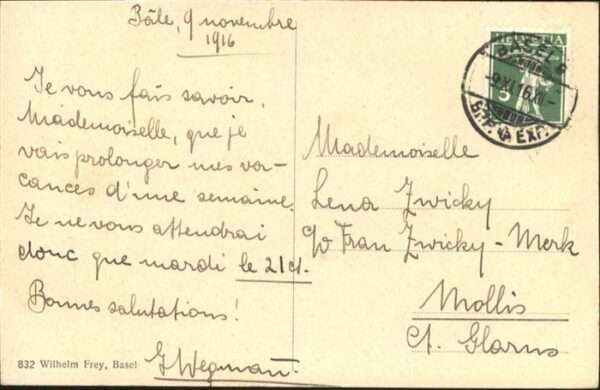 Bâle, 9 novembre
1916
Je vous fais savoir,
Mademoiselle, que je
vais prolonger mes va-
cances d'une semaine.
Je ne vous attendrai
donc que mardi le 21 ct.
Bonnes salutations!
J. Wegmann.
832 Wilhelm Frey, Basel
HELVETIA
5
BASEL 2
-9.XI.16.XII-
BRF. EXP.
Mademoiselle
Lena Zwicky
c/o Frau Zwicky-Merk
Mollis
Ct. Glarus